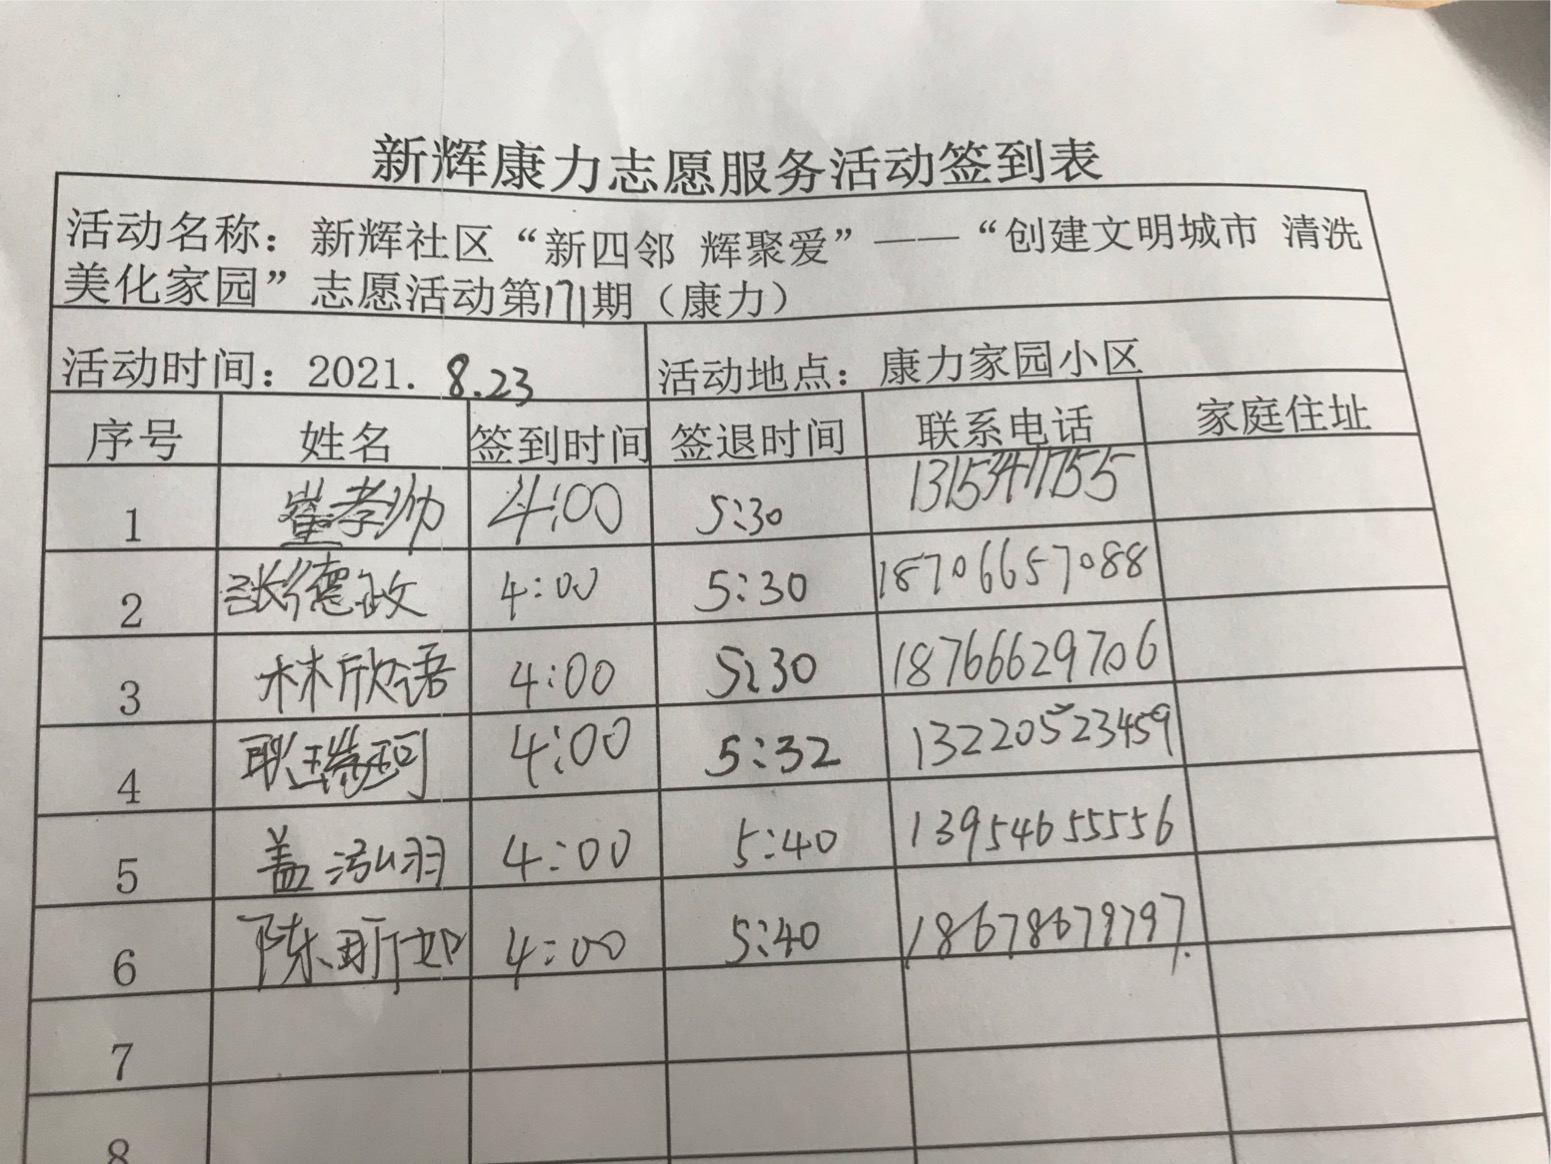 新辉康力志愿服务活动签到表
活动名称：新辉社区“新四邻 辉聚爱”——“创建文明城市 清洗
美化家园”志愿活动第171期（康力）
活动时间：2021. 8.23 活动地点：康力家园小区
序号 姓名 签到时间 签退时间 联系电话 家庭住址
1 崔孝帅 4:00 5:30
2 张德政 4:00 5:30 18706657088
3 林欣语 4:00 5:30 18766629706
4 耿瑞珂 4:00 5:32
5 盖泓羽 4:00 5:40 13954655556
6 陈昕如 4:00 5:40 18678679797.
7
8